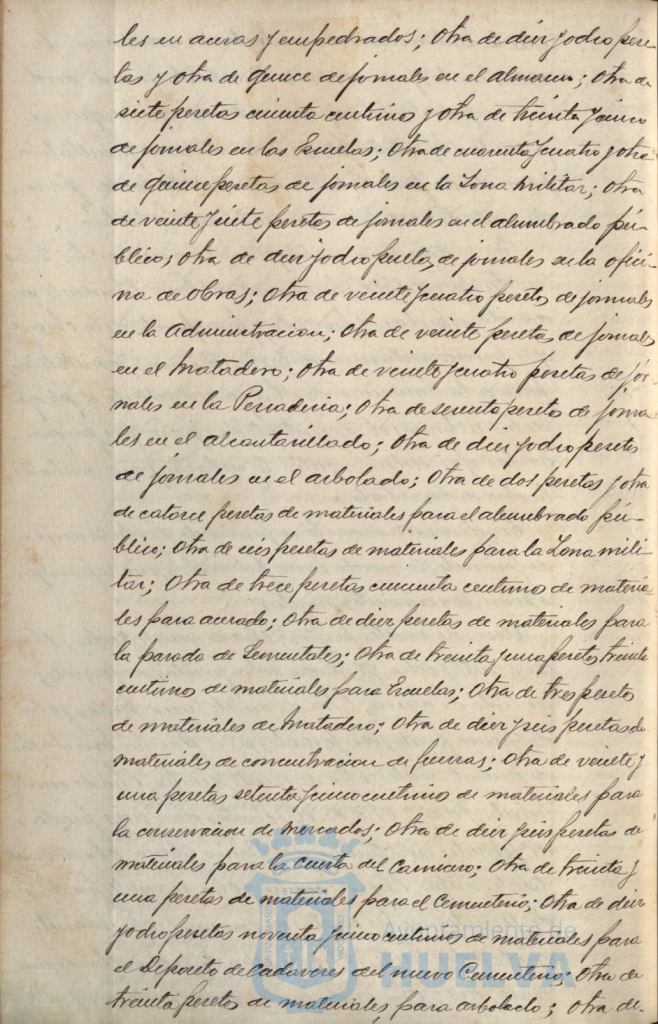 les en aceras y empedrados; Otra de diez y ocho pese-
tas y otra de quince de jornales en el almacen; Otra de
siete pesetas cincuenta centimos y otra de treinta y cinco
de jornales en las Escuelas; Otra de cuarenta y cuatro y otra
de quince pesetas de jornales en la Zona militar; Otra
de veinte y siete pesetas de jornales en el alumbrado pú-
blico; Otra de diez y ocho pesetas de jornales en la ofici-
na de Obras; Otra de veinte y cuatro pesetas de jornales
en la Administracion; Otra de veinte pesetas de jornales
en el Matadero; Otra de veinte y cuatro pesetas de jor-
nales en la Pescaderia; Otra de sesenta pesetas de jorna-
les en el alcantarillado; Otra de diez y ocho pesetas
de jornales en el arbolado; Otra de dos pesetas y otra
de catorce pesetas de materiales para el alumbrado pú-
blico; Otra de seis pesetas de materiales para la Zona mili-
tar; Otra de trece pesetas cincuenta centimos de materia-
les para acerado; Otra de diez pesetas de materiales para
la parada de Sementales; Otra de treinta y una pesetas treinta
centimos de materiales para Escuelas; Otra de tres pesetas
de materiales de Matadero; Otra de diez y seis pesetas de
materiales de concentracion de fuerzas; Otra de veinte y
una pesetas setenta y cinco centimos de materiales para
la conservacion de Mercados; Otra de diez y seis pesetas de
materiales para la Cuesta del Carnicero; Otra de treinta y
una pesetas de materiales para el Cementerio; Otra de diez
y ocho pesetas noventa y cinco centimos de materiales para
el Deposito de Cadaveres del nuevo Cementerio; Otra de
treinta pesetas de materiales para arbolado; Otra de-
Ayuntamiento de
HUELVA